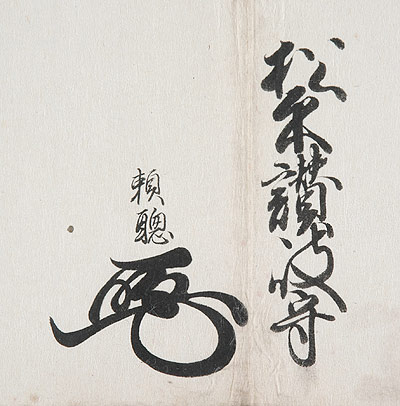 松平讃岐守
頼聰